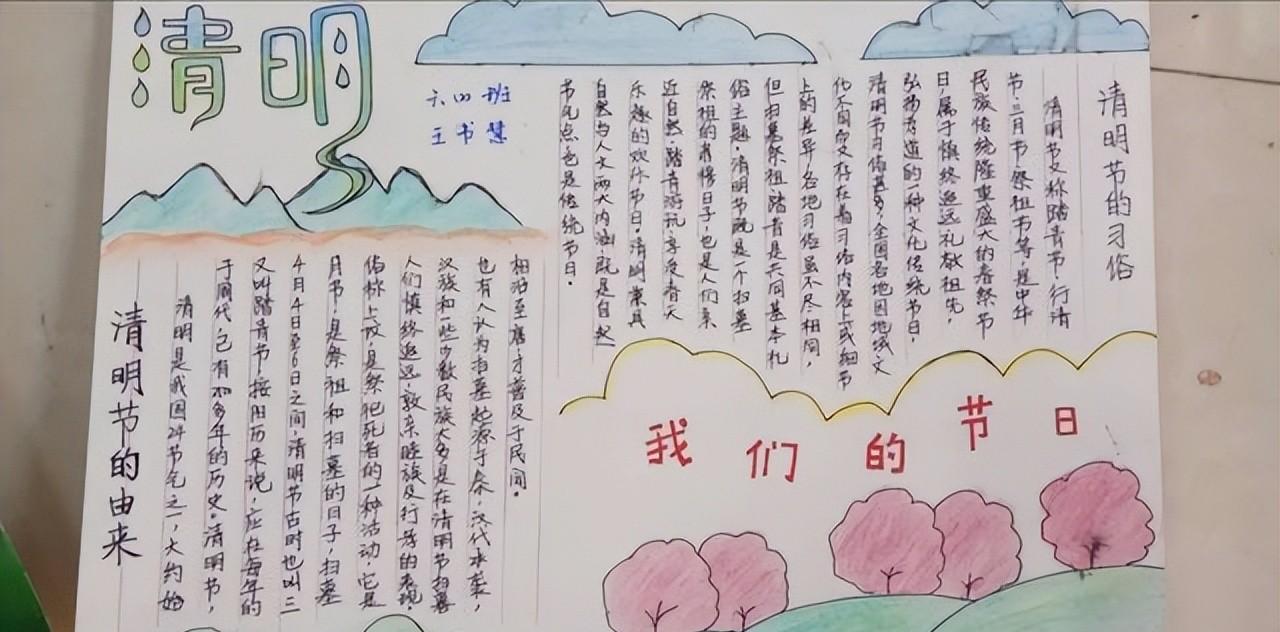 清明
六四班
王书慧
清明节的习俗
清明节又称踏青节、行清
节、三月节、祭祖节等,是中华
民族传统隆重盛大的春祭节
日,属于慎终追远、礼敬祖先、
弘扬孝道的一种文化传统节日。
清明节习俗甚多,全国各地因地域文
化不同而又存在着习俗内容上或细节
上的差异,各地习俗虽不尽相同,
但扫墓祭祖、踏青是共同基本礼
俗主题。清明节既是一个扫墓
祭祖的肃穆日子,也是人们亲
近自然、踏青游玩、享受春天
乐趣的欢乐节日。清明兼具
自然与人文两大内涵,既是自然
节气点,也是传统节日。
清明节的由来
清明是我国24节气之一,大约始
于周代,已有多年的历史。清明节,
又叫踏青节,按阳历来说,应在每年的
4月4日至6日之间,清明节古时也叫三
月节,是祭祖和扫墓的日子,扫墓
俗称上坟,是祭祀死者的一种活动,它是
人们慎终追远、敦亲睦族及行孝的表现。
汉族和一些少数民族大多是在清明节扫墓
也有人认为扫墓起源于秦,汉代承袭,
相沿至唐,才普及于民间。
我们的节日